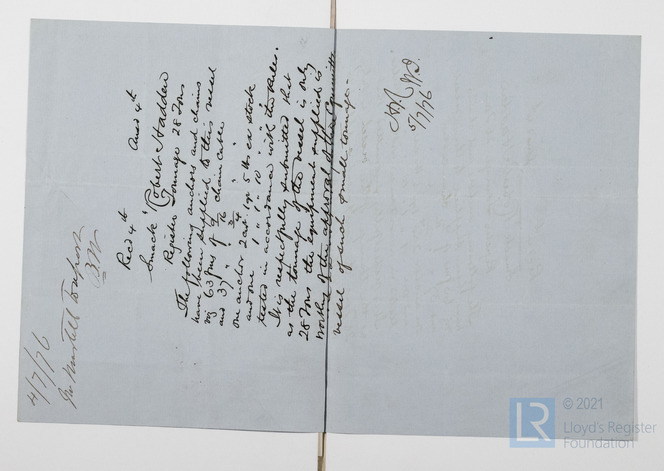 4/7/76
Recd 4th Ansd 4th
Smack "Robert Hadden"
Register Tonnage 28 Tons
The following anchors and chains
have been supplied to this vessel
viz 63 fms of 9/16 chain cable
and 37
one anchor 2 cwt 1 qr 5 lbs ex stock
and one 1 " 1 " 10 " " "
tested in accordance with the Rules.
It is respectfully submitted that
as the tonnage of the vessel is only
28 Tons the equipment supplied is
worthy of the approval of the Committee
vessel of such small tonnage.
5/7/76
LR © 2021
Lloyd's Register
Foundation